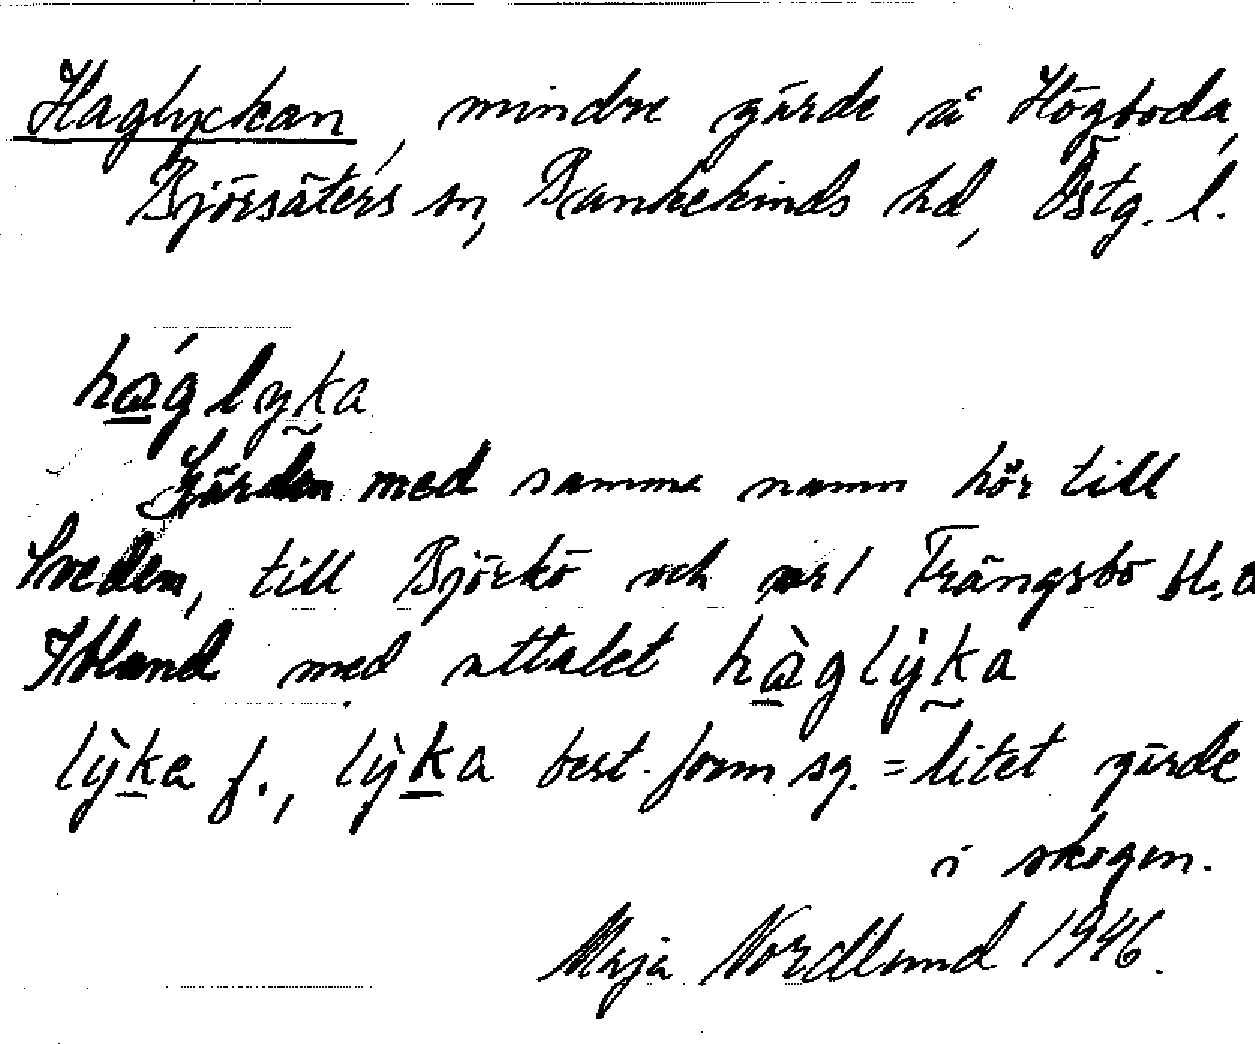 Haglyckan, mindre gärde å Högboda,
Björsäters sn, Bankekinds hd, Östg. l.
háglyka
Gärden med samma namn hör till
Sveden, till Björkö och Trängsbo bl.a
Ibland med uttalet hàglỳka
lỳka f., lỳka best. form sg. = litet gärde
i skogen.
Maja Nordlund 1946.